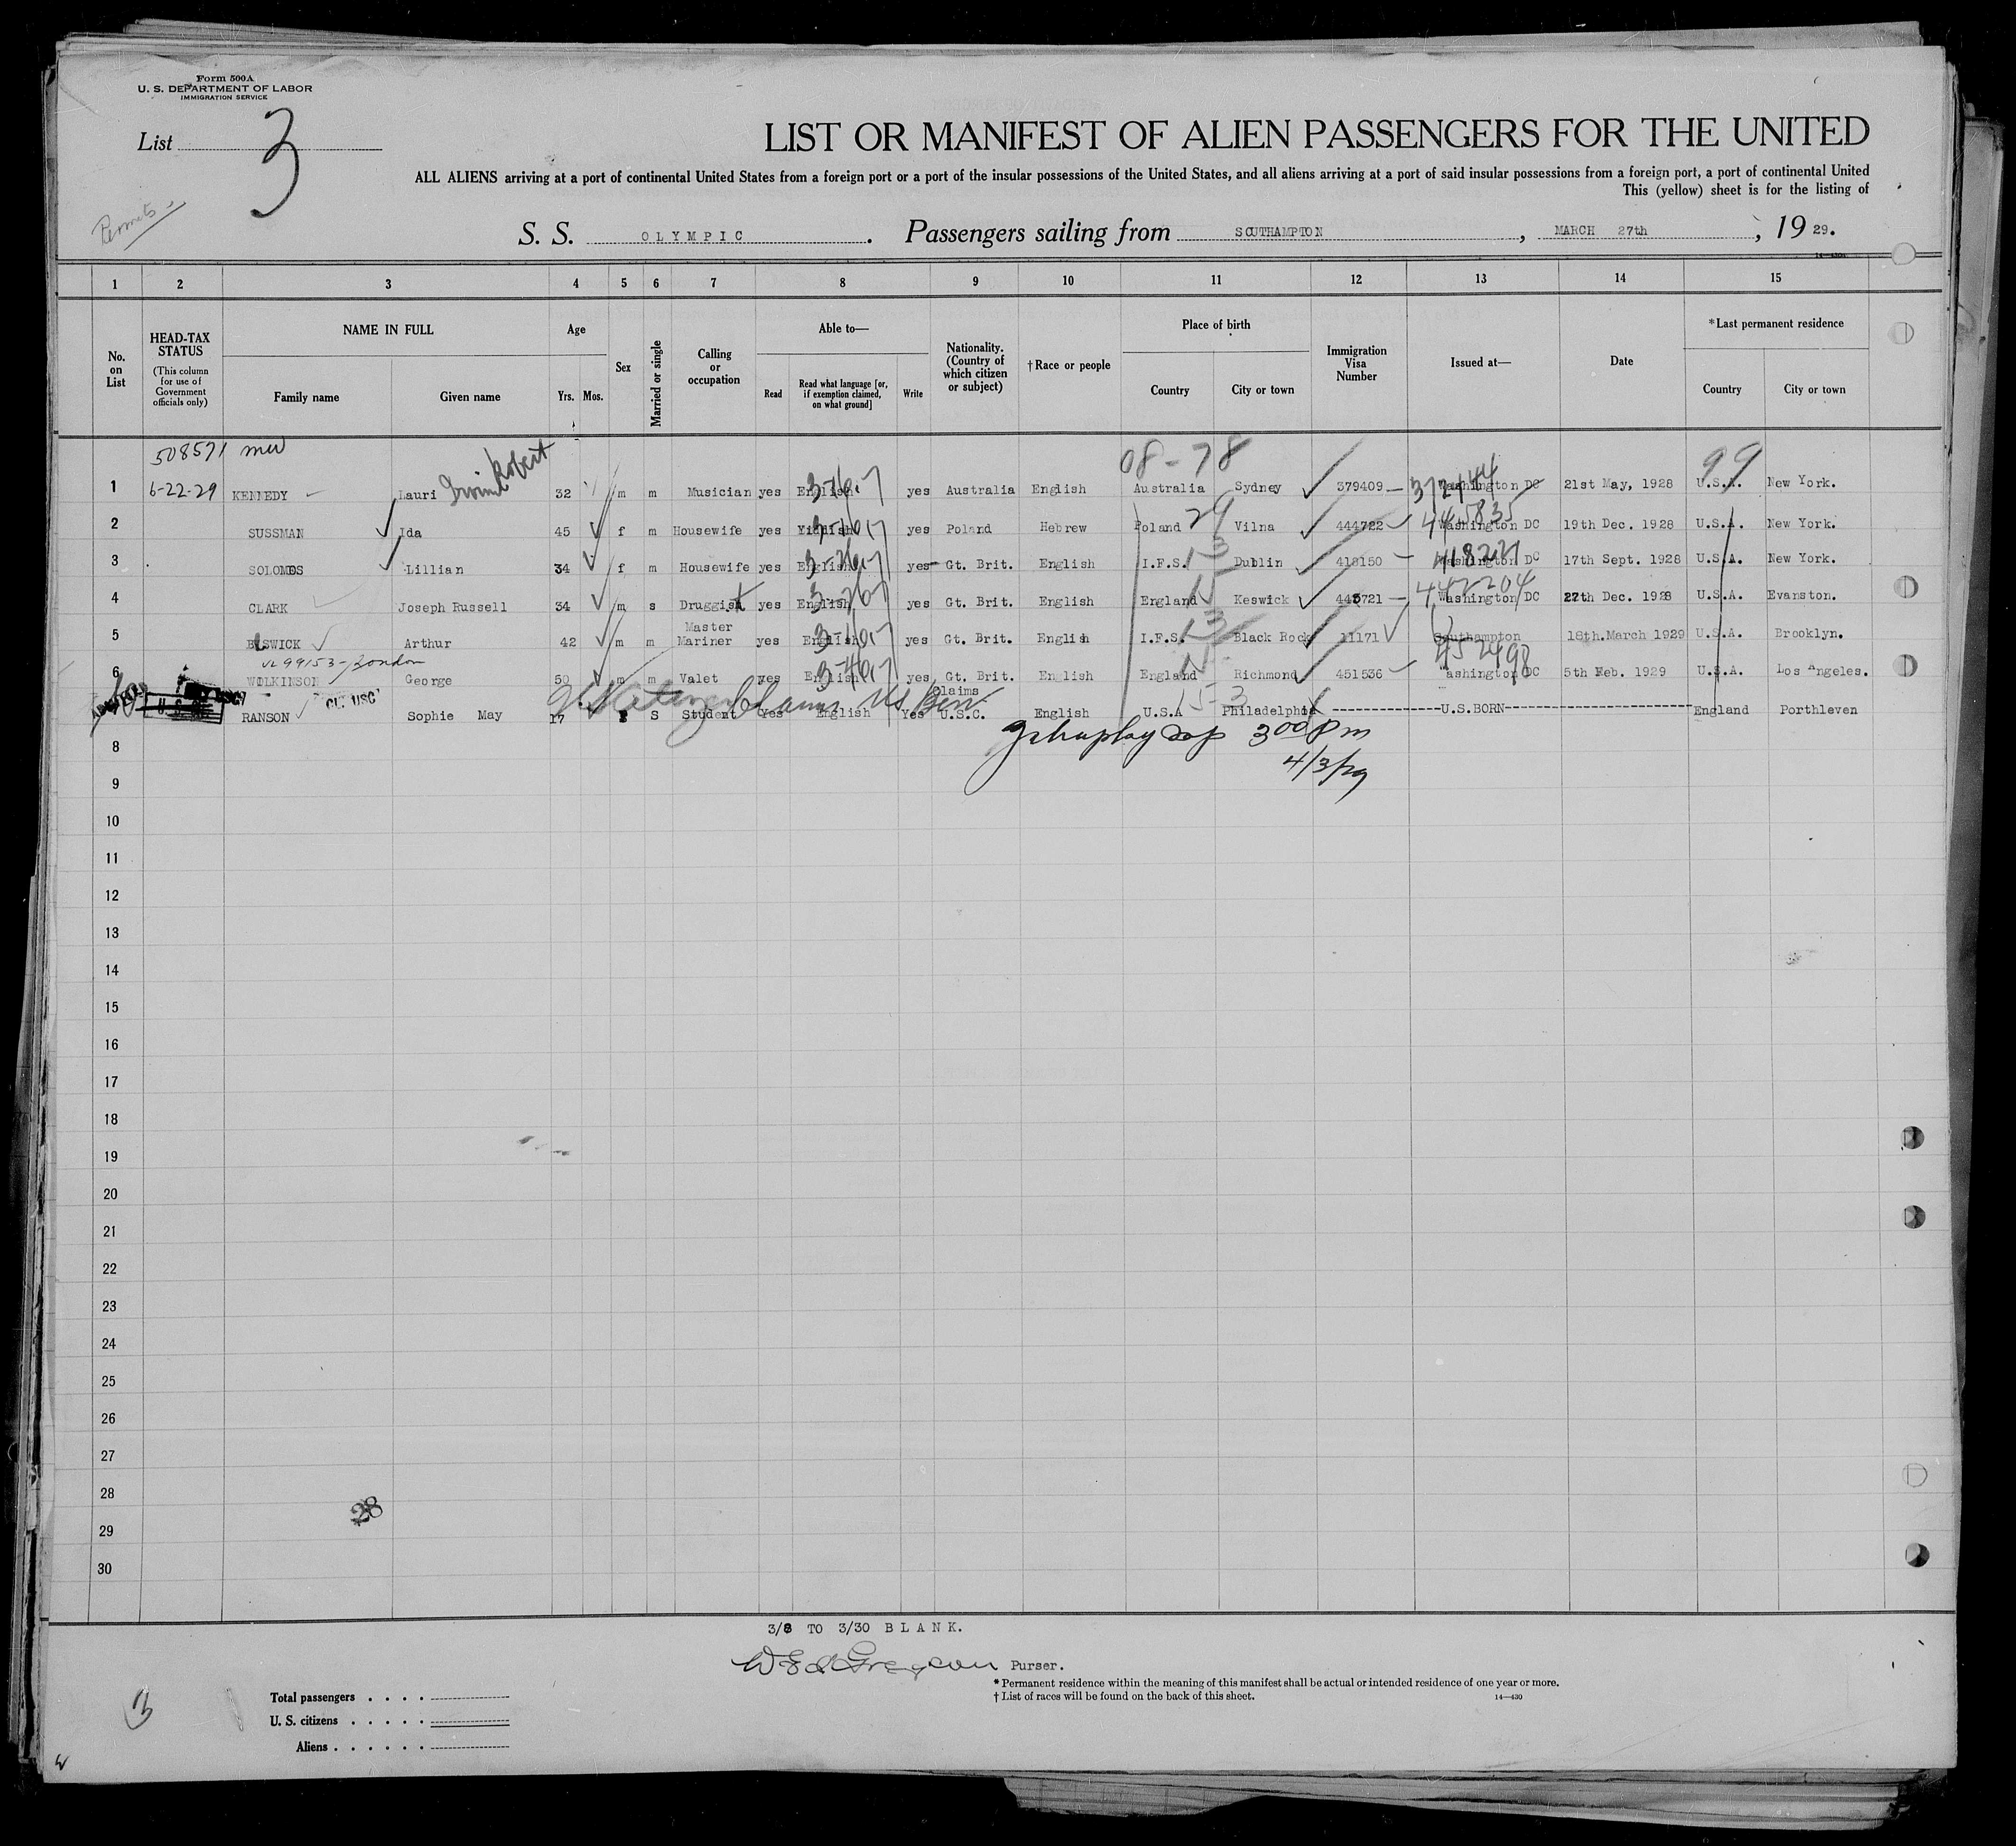 Form 500A
U. S. DEPARTMENT OF LABOR
IMMIGRATION SERVICE
List 3
Permits
LIST OR MANIFEST OF ALIEN PASSENGERS FOR THE UNITED
ALL ALIENS arriving at a port of continental United States from a foreign port or a port of the insular possessions of the United States, and all aliens arriving at a port of said insular possessions from a foreign port, a port of continental United
This (yellow) sheet is for the listing of
S. S. OLYMPIC. Passengers sailing from SOUTHAMPTON, MARCH 27th, 19 29.
14—430
1 2 3 4 5 6 7 8 9 10 11 12 13 14 15
No. on List
HEAD-TAX STATUS
(This column for use of Government officials only)
NAME IN FULL
Family name Given name
Age
Yrs. Mos.
Sex
Married or single
Calling or occupation
Able to—
Read Read what language [or, if exemption claimed, on what ground] Write
Nationality. (Country of which citizen or subject)
† Race or people
Place of birth
Country City or town
Immigration Visa Number
Issued at—
Date
*Last permanent residence
Country City or town
508571 08-78 99
1 6-22-29 KENNEDY Lauri Robert 32 m m Musician yes English yes Australia English Australia Sydney 379409 Washington DC 21st May, 1928 U.S.A. New York.
2 SUSSMAN Ida 45 f m Housewife yes Yiddish yes Poland Hebrew Poland 29 Vilna 444722 445835 Washington DC 19th Dec. 1928 U.S.A. New York.
3 SOLOMOS Lillian 34 f m Housewife yes English yes Gt. Brit. English I.F.S. 13 Dublin 418150 Washington DC 17th Sept. 1928 U.S.A. New York.
4 CLARK Joseph Russell 34 m s Druggist yes English yes Gt. Brit. English England Keswick 445721 447204 Washington DC 27th Dec. 1928 U.S.A. Evanston.
5 ELSWICK Arthur 42 m m Master Mariner yes English yes Gt. Brit. English I.F.S. 13 Black Rock 11171 Southampton 18th.March 1929 U.S.A. Brooklyn.
VL 99153-London
6 WILKINSON George 50 m m Valet yes English yes Gt. Brit. English England Richmond 451536 452498 Washington DC 5th Feb. 1929 U.S.A. Los Angeles.
RANSON CL. USC Sophie May 17 F S Student Yes English Yes Claims U.S.C. English U.S.A 15-3 Philadelphia U.S.BORN England Porthleven
3 00 pm
4/3/29
8
9
10
11
12
13
14
15
16
17
18
19
20
21
22
23
24
25
26
27
28
28
29
30
3/8 TO 3/30 BLANK.
Purser.
* Permanent residence within the meaning of this manifest shall be actual or intended residence of one year or more.
† List of races will be found on the back of this sheet.
14—430
Total passengers
U. S. citizens
Aliens
3